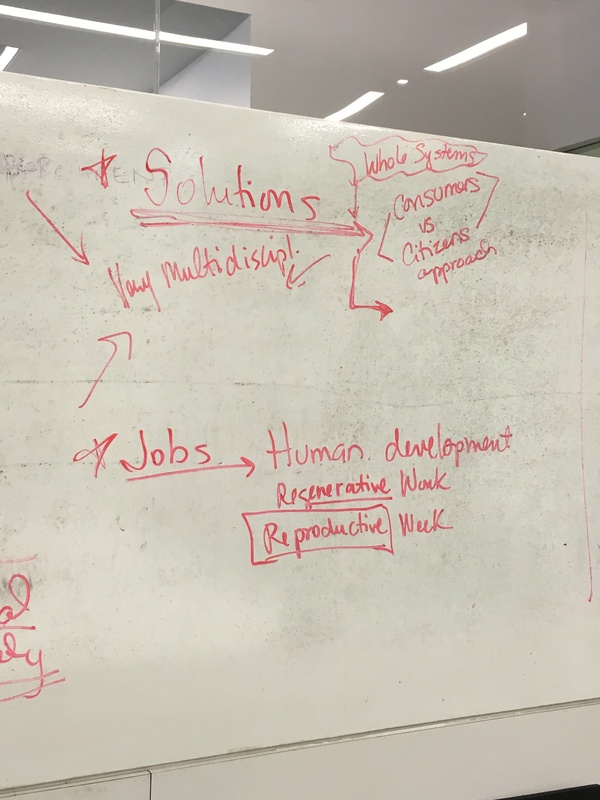 Solutions
Whole Systems
Consumors
vs
Citizens
approach
Very Multidiscipl.
Jobs
Human development
Regenerative Work
Reproductive Work